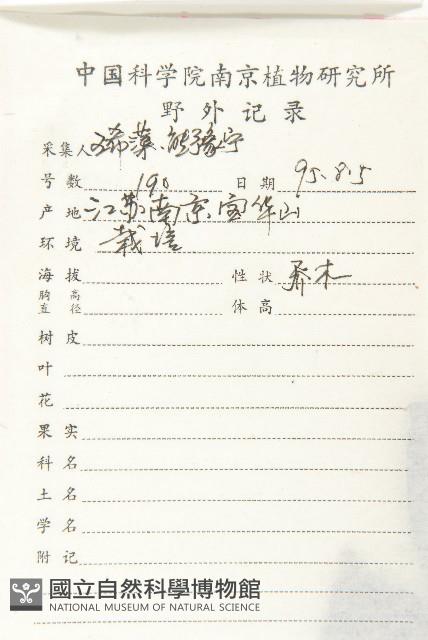 中国科学院南京植物研究所
野外记录
采集人 熊豫宁
号数 190 日期 95.8.5
产地 江苏南京宝华山
环境 栽培
海拔 性状 乔木
胸高直径 体高
树皮
叶
花
果实
科名
土名
学名
附记
國立自然科學博物館
NATIONAL MUSEUM OF NATURAL SCIENCE